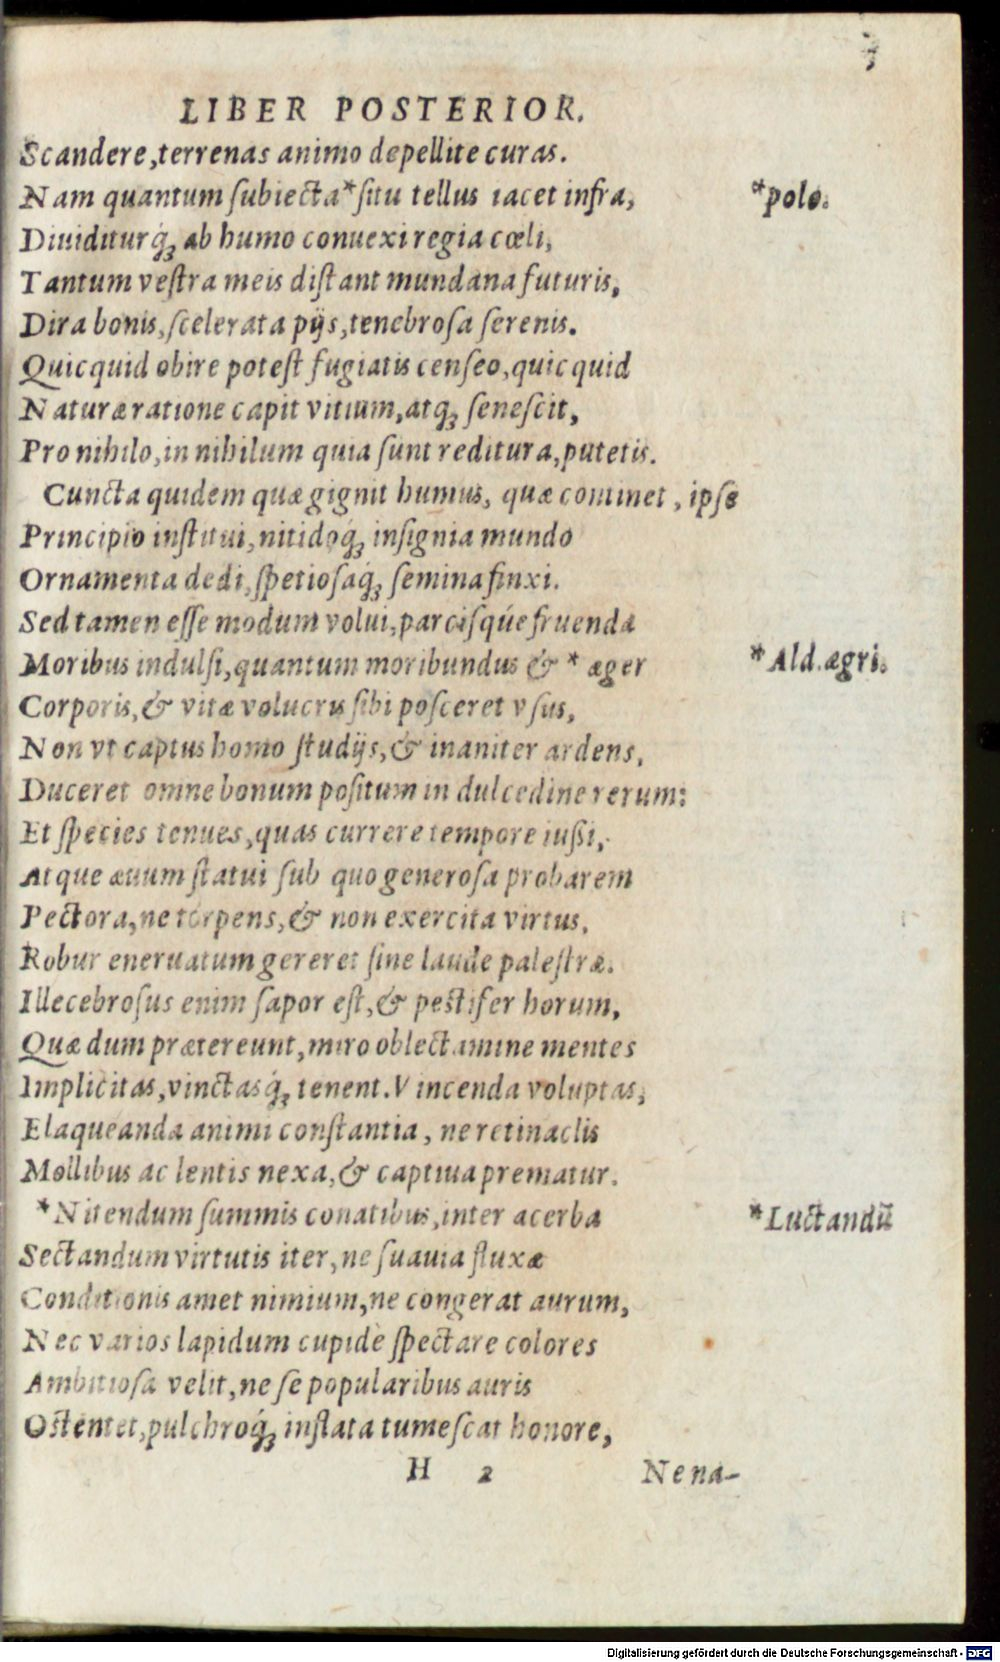 LIBER POSTERIOR.
Scandere, terrenas animo depellite curas.
Nam quantum ſubiecta * ſitu tellus iacet infra,
*polo.
Diuiditurq́ꝫ ab humo conuexi regia cœli,
Tantum veſtra meis diſtant mundana futuris,
Dira bonis, ſcelerata pijs, tenebroſa ſerenis.
Quicquid obire poteſt fugiatis cenſeo, quicquid
Naturæ ratione capit vitium, atqꝫ ſeneſcit,
Pro nihilo, in nihilum quia ſunt reditura, putetis.
Cuncta quidem quæ gignit humus, quæ continet, ipſe
Principio inſtitui, nitidoq́ꝫ inſignia mundo
Ornamenta dedi, ſpetioſaq́ꝫ ſemina finxi.
Sed tamen eſſe modum volui, parcisq́ue fruenda
Moribus indulſi, quantum moribundus & * æger
*Ald. ægri.
Corporis, & vitæ volucris ſibi poſceret vſus,
Non vt captus homo ſtudijs, & inaniter ardens,
Duceret omne bonum poſitum in dulcedine rerum:
Et ſpecies tenues, quas currere tempore iuſſi,
Atque æuum ſtatui ſub quo generoſa probarem
Pectora, ne torpens, & non exercita virtus,
Robur eneruatum gereret ſine laude paleſtræ.
Illecebroſus enim ſapor eſt, & peſtifer horum,
Quæ dum prætereunt, miro oblectamine mentes
Implicitas, vinctasq́ꝫ tenent. Vincenda voluptas,
Elaqueanda animi conſtantia, ne retinaclis
Mollibus ac lentis nexa, & captiua prematur.
*Nitendum ſummis conatibus, inter acerba
*Luctandū
Sectandum virtutis iter, ne ſuauia fluxæ
Conditionis amet nimium, ne congerat aurum,
Nec varios lapidum cupidè ſpectare colores
Ambitioſa velit, ne ſe popularibus auris
Oſtentet, pulchroq́ꝫ inflata tumeſcat honore,
H 2 Ne na-
Digitalisierung gefördert durch die Deutsche Forschungsgemeinschaft - DFG